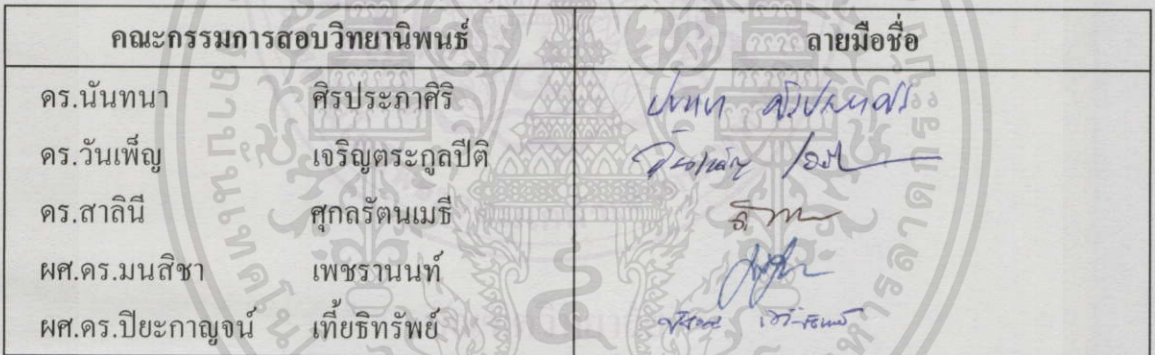 คณะกรรมการสอบวิทยานิพนธ์ ลายมือชื่อ
ดร.นันทนา ศิรประภาศิริ
ดร.วันเพ็ญ เจริญตระกูลปีติ
ดร.สาลินี ศุกลรัตนเมธี
ผศ.ดร.มนสิชา เพชรานนท์
ผศ.ดร.ปิยะกาญจน์ เที้ยธิทรัพย์